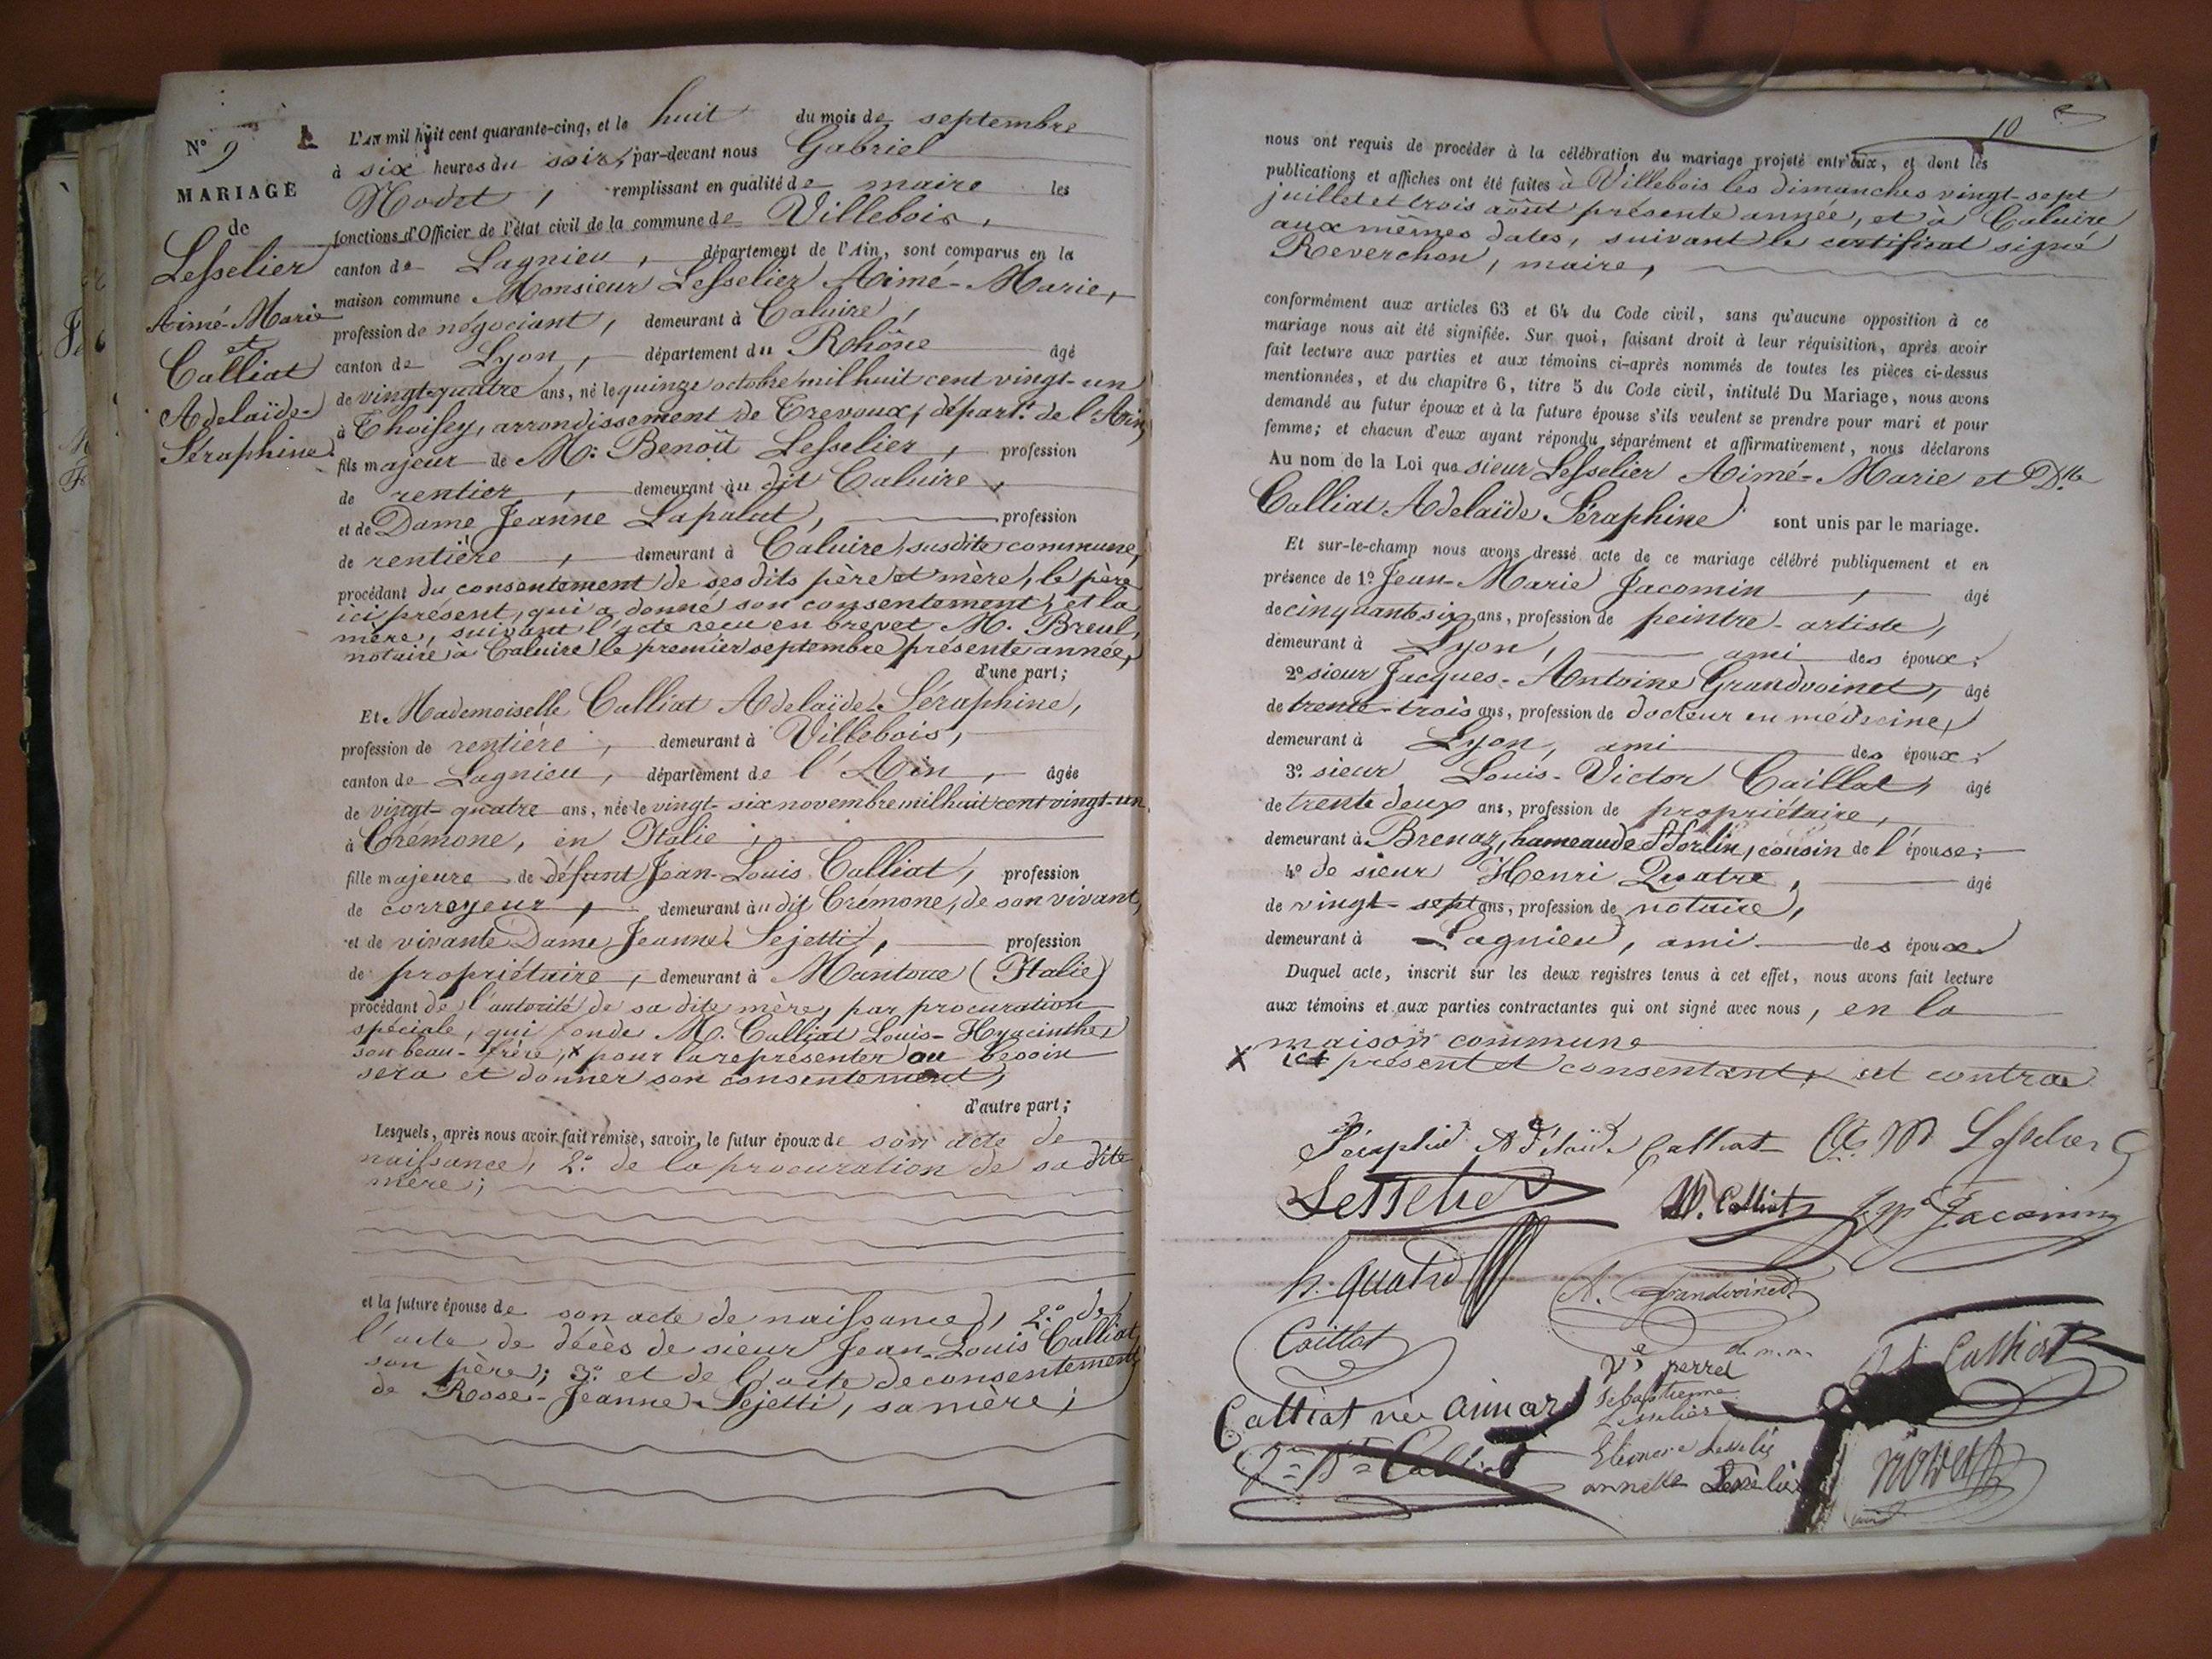 N° 9
MARIAGE
de
Lesselier
Aimé-Marie
et
Calliat
Adelaïde-
Séraphine
L'An mil huit cent quarante-cinq, et le huit du mois de septembre
à six heures du soir, par-devant nous Gabriel
Nodet, remplissant en qualité de maire les
fonctions d'Officier de l'état civil de la commune de Villebois,
canton de Lagnieu, département de l'Ain, sont comparus en la
maison commune Monsieur Lesselier Aimé-Marie,
profession de négociant, demeurant à Caluire,
canton de Lyon, département du Rhône âgé
de vingt-quatre ans, né le quinze octobre mil huit cent vingt-un
à Thoissey, arrondissement de Trevoux, départ.t de l'Ain,
fils majeur de M.r Benoît Lesselier, profession
de rentier, demeurant au dit Caluire,
et de Dame Jeanne Lapalut, profession
de rentière, demeurant à Caluire, susdite commune,
procédant du consentement de ses dits père et mère, le père
ici présent, qui a donné son consentement, et la
mère, suivant l'acte recu en brevet M. Breul,
notaire à Caluire le premier septembre présente année,
d'une part;
Et Mademoiselle Calliat Adelaïde-Séraphine,
profession de rentière, demeurant à Villebois,
canton de Lagnieu, département de l'Ain, âgée
de vingt-quatre ans, née le vingt-six novembre mil huit cent vingt-un
à Crémone, en Italie,
fille majeure de défunt Jean-Louis Calliat, profession
de corroyeur, demeurant au dit Crémone, de son vivant,
et de vivante Dame Jeanne Sejetti, profession
de propriétaire, demeurant à Mantoue (Italie)
procédant de l'autorité de sa dite mère, par procuration
spéciale, qui fonde M. Calliat Louis-Hyacinthe,
son beau-frère, x pour la représenter au besoin
sera et donner son consentement,
d'autre part;
Lesquels, après nous avoir fait remise, savoir, le futur époux de son acte de
naissance, 2.° de la procuration de sa dite
mère;
et la future épouse de son acte de naissance, 2.° de
l'acte de décès de sieur Jean-Louis Calliat,
son père; 3.° et de l'acte de consentement
de Rose-Jeanne Sejetti, sa mère;
10
nous ont requis de procéder à la célébration du mariage projeté entr'eux, et dont les
publications et affiches ont été faites à Villebois les dimanches vingt-sept
juillet et trois août présente année, et à Caluire
aux mêmes dates, suivant le certificat signé
Reverchon, maire,
conformément aux articles 63 et 64 du Code civil, sans qu'aucune opposition à ce
mariage nous ait été signifiée. Sur quoi, faisant droit à leur réquisition, après avoir
fait lecture aux parties et aux témoins ci-après nommés de toutes les pièces ci-dessus
mentionnées, et du chapitre 6, titre 5 du Code civil, intitulé Du Mariage, nous avons
demandé au futur époux et à la future épouse s'ils veulent se prendre pour mari et pour
femme; et chacun d'eux ayant répondu séparément et affirmativement, nous déclarons
Au nom de la Loi que sieur Lesselier Aimé-Marie et D.lle
Calliat Adelaïde Séraphine sont unis par le mariage.
Et sur-le-champ nous avons dressé acte de ce mariage célébré publiquement et en
présence de 1° Jean-Marie Jacomin, âgé
de cinquante six ans, profession de peintre-artiste,
demeurant à Lyon, ami des époux;
2° sieur Jacques-Antoine Grandvoinet, âgé
de trente-trois ans, profession de docteur en médecine,
demeurant à Lyon, ami des époux;
3° sieur Louis-Victor Caillat, âgé
de trente deux ans, profession de propriétaire,
demeurant à Brenaz, hameau de St Sorlin, cousin de l'épouse;
4° de sieur Henri Quatre, âgé
de vingt-sept ans, profession de notaire,
demeurant à Lagnieu, ami des époux
Duquel acte, inscrit sur les deux registres tenus à cet effet, nous avons fait lecture
aux témoins et aux parties contractantes qui ont signé avec nous, en la
maison commune
x ici présent et consentant,
Adélaïde Calliat A. M Lesselier
Lesselier Calliat Jacomin
h. quatre A. Grandvoinet
d. m. m.
Caillat Ve perret Calliat
Calliat née aimar Sebastienne
Lesselier
Eléonore Lesselier
annette Lesselier Nodet